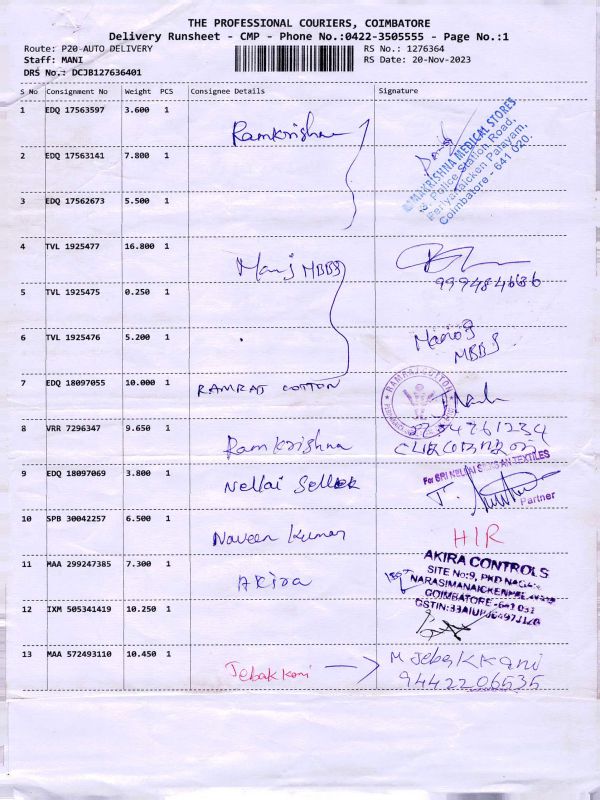 THE PROFESSIONAL COURIERS, COIMBATORE
Delivery Runsheet - CMP - Phone No.:0422-3505555 - Page No.:1
Route: P20-AUTO DELIVERY RS No.: 1276364
Staff: MANI RS Date: 20-Nov-2023
DRS No.: DCJB127636401
S No Consignment No Weight PCS Consignee Details Signature
1 EDQ 17563597 3.600 1 Ramkrishna
RAMAKRISHNA MEDICAL STORES
Police Station Road,
Periyanaicken Palayam,
Coimbatore - 641 020.
2 EDQ 17563141 7.800 1
3 EDQ 17562673 5.500 1
4 TVL 1925477 16.800 1 Manoj MBBS
5 TVL 1925475 0.250 1
6 TVL 1925476 5.200 1 Manoj
MBBS
7 EDQ 18097055 10.000 1 RAMRAJ COTTON
RAMRAJ COTTON
8 VRR 7296347 9.650 1 Ramkrishna
9 EDQ 18097069 3.800 1 Nellai Seller
For SRI NELLAI TEXTILES
Partner
10 SPB 30042257 6.500 1 Naveen Kumar HIR
11 MAA 299247385 7.300 1 Akira
AKIRA CONTROLS
SITE No:9, PKD NAGAR
COIMBATORE - 641 031
12 IXM 505341419 10.250 1
13 MAA 572493110 10.450 1 Jebakkani M Jebakkani
9442206535